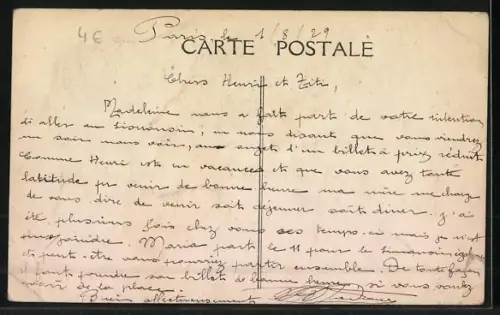 4€
Paris le 1/8/29
CARTE POSTALE
Chers Henri et Titi,
Madeleine nous a fait part de votre intention
d'aller au Limousin, en nous disant que vous viendrez
un soir nous voir, au sujet d'un billet à prix réduit
Comme Henri est en vacances et que vous avez toute
latitude pr venir de bonne heure ma mère me charge
de vous dire de venir soit déjeuner soit diner. J'ai
été plusieurs fois chez vous ces temps-ci mais je n'ai
pu joindre. Maria part le 11 pour le Limousin
et peut-être vous pourriez partir ensemble. De toute façon
il faut prendre son billet de bonne heure, si vous voulez
avoir de la place.
Bien affectueusement